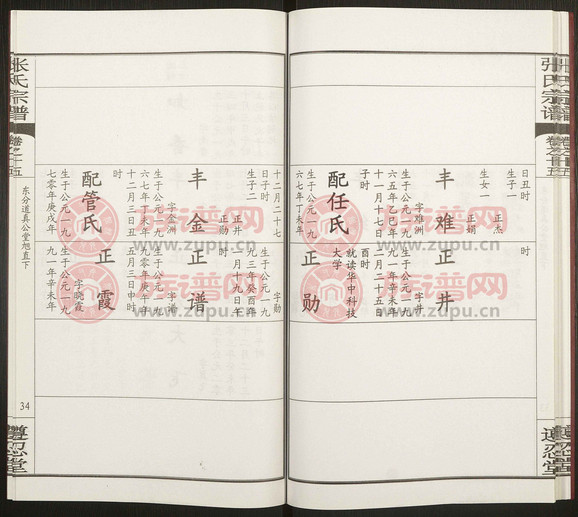 张氏宗谱
卷之十五
遵忍堂
日丑时
生子一
正杰
生女一
正娟
丰难
字难洲
生于公元一九
六五年乙巳年
十一月十七日
子时
配任氏
生于公元一九
六七年丁未年
正井
字井
生于公元一九
九一年辛未年
十一月二十五日
酉时
就读华中科技
大学
正勋
字勋
生于公元一九
九三年癸酉年
一月十九日午
时
十二月二十七
日子时
生子二
正井
正勋
丰金
字金洲
生于公元一九
六七年丁未年
十二月三日丑
时
配管氏
生于公元一九
七零年庚戌年
正谱
字谱
生于公元一九
九零年庚午年
五月三日申时
正霞
字晓霞
生于公元一九
九一年辛未年
张氏宗谱
卷之十五
东分道真公堂旭直下
34
遵忍堂
八音族谱网
www.zupu.cn